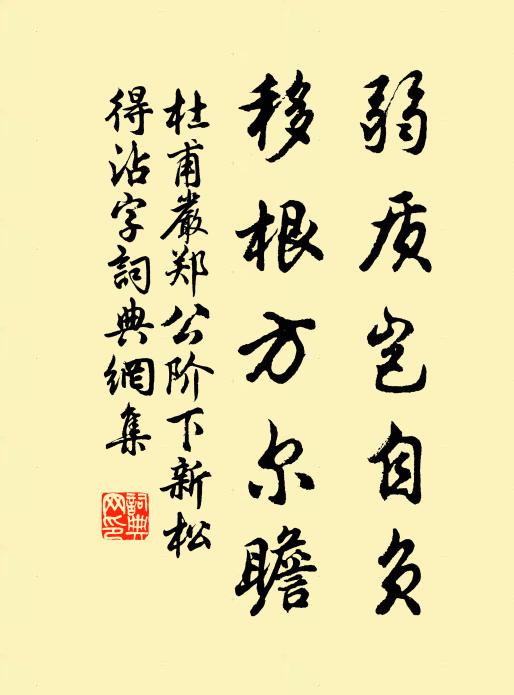 弱质岂自负
移根方尔瞻
杜甫嚴郑公阶下新松
得沾字詞典網集
詞典网印